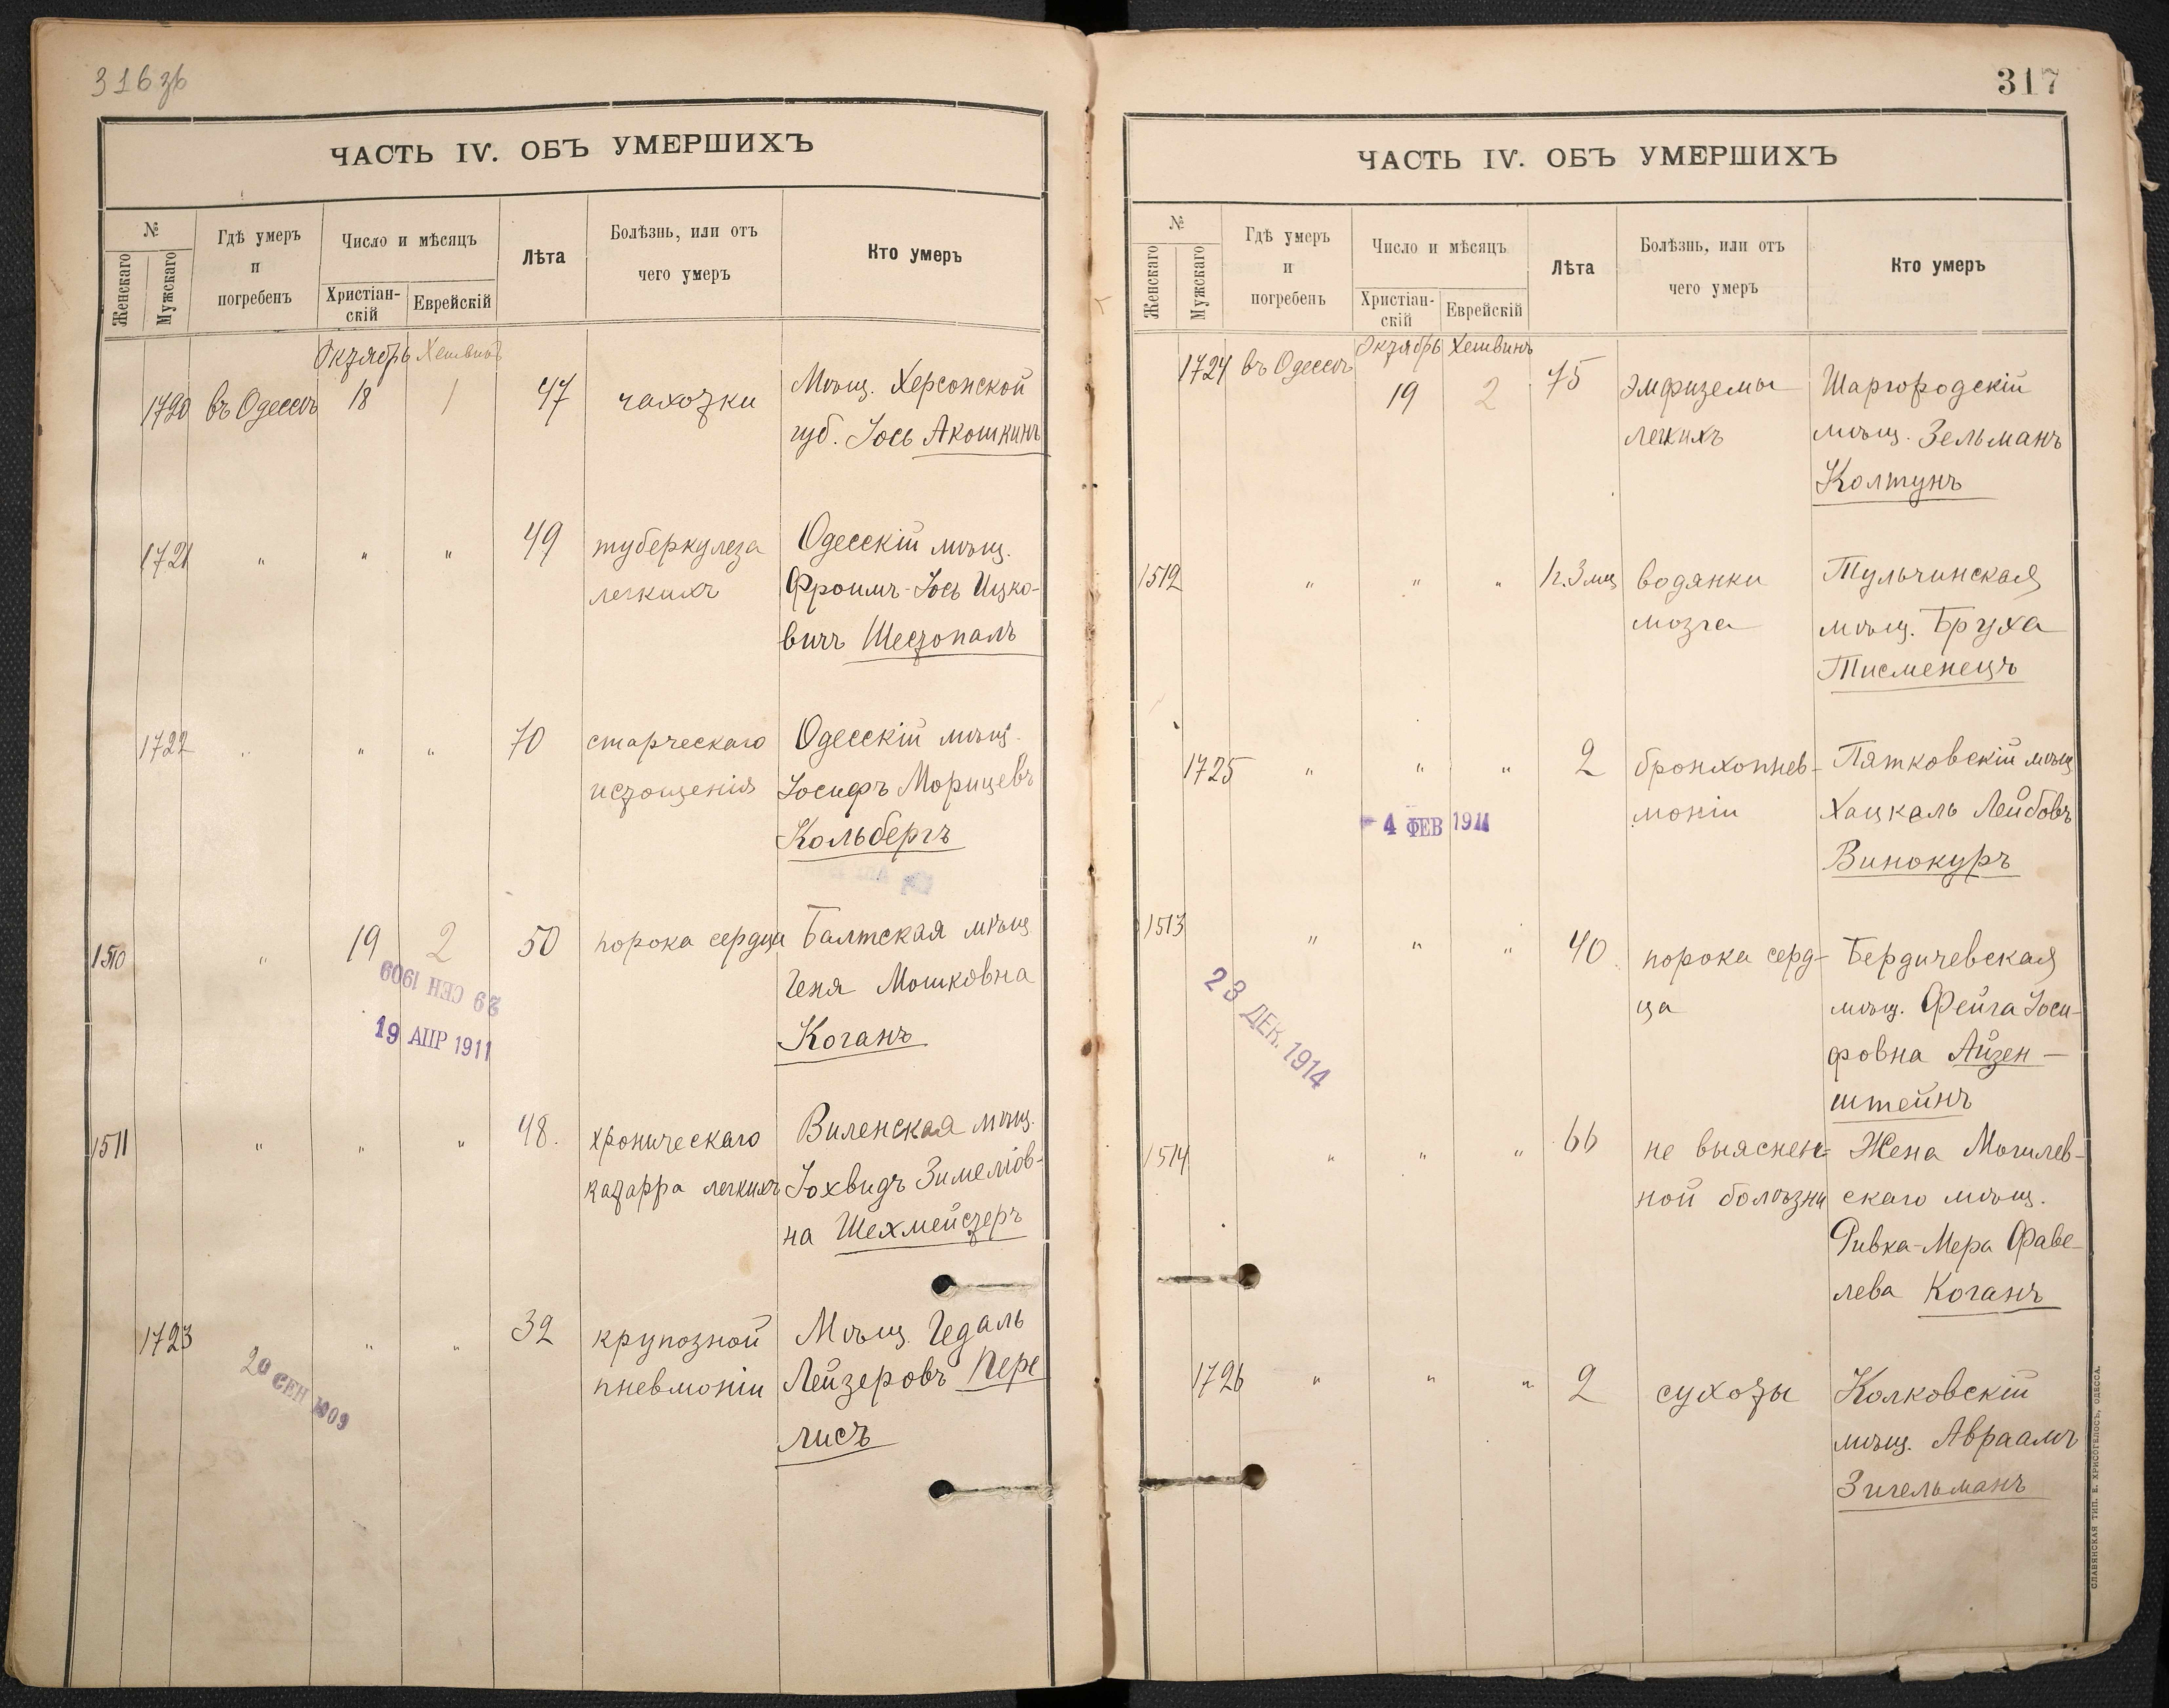 316 зв
ЧАСТЬ IV. ОБЪ УМЕРШИХЪ
№
Женскаго
Мужскаго
Гдѣ умеръ
и
погребенъ
Число и мѣсяцъ
Христіан-
скій
Еврейскій
Лѣта
Болѣзнь, или отъ
чего умеръ
Кто умеръ
Октябрь Хешвинъ
1720 въ Одессѣ 18 1 47 чахотки Мѣщ. Херсонской
губ. Іось Акошкинъ
1721 " " " 49 туберкулеза Одесскій мѣщ.
легкихъ Фроимъ-Іось Ицко-
вичъ Шестопалъ
1722 " " " 70 старческаго Одесскій мѣщ.
истощенія Іосифъ Морицевъ
Кольбергъ
1510 " 19 2 50 порока сердца Балтская мѣщ
Геня Мошковна
29 СЕН 1909
19 АПР 1911
Коганъ
1511 " " " 48. хроническаго Виленская мѣщ.
катарра легкихъ Іохвидъ Зимеліов-
на Шехмейстеръ
1723 " " 32 крупозной Мѣщ. Гедаль
пневмоніи Лейзеровъ Пере
лисъ
20 СЕН 1909
317
ЧАСТЬ IV. ОБЪ УМЕРШИХЪ
№
Женскаго
Мужскаго
Гдѣ умеръ
и
погребенъ
Число и мѣсяцъ
Христіан-
скій
Еврейскій
Лѣта
Болѣзнь, или отъ
чего умеръ
Кто умеръ
Октябрь Хешвинъ
1724 въ Одессѣ 19 2 75 эмфиземы Шаргородскій
легкихъ мѣщ. Зельманъ
Колтунъ
1512 " " " 1 г. 3 мц водянки Тульчинская
мозга мѣщ. Бруха
Тисменецъ
1725 " " " 2 бронхопнев- Пятковскій мѣщ
моніи Хацкаль Лейбовъ
4 ФЕВ 1911
Винокуръ
1513 " " " 40 порока серд- Бердичевская
ца мѣщ. Фейга Іоси-
фовна Айзен-
штейнъ
23 ДЕК. 1914
1514 " " " 66 не выяснен- Жена Могилев-
ной болѣзни скаго мѣщ.
Ривка-Мера Фаве-
лева Коганъ
1726 " " " 2 сухоты Колковскій
мѣщ. Авраамъ
Зигельманъ
СЛАВЯНСКАЯ ТИП. Е. ХРИСОГЕЛОСЪ, ОДЕССА.